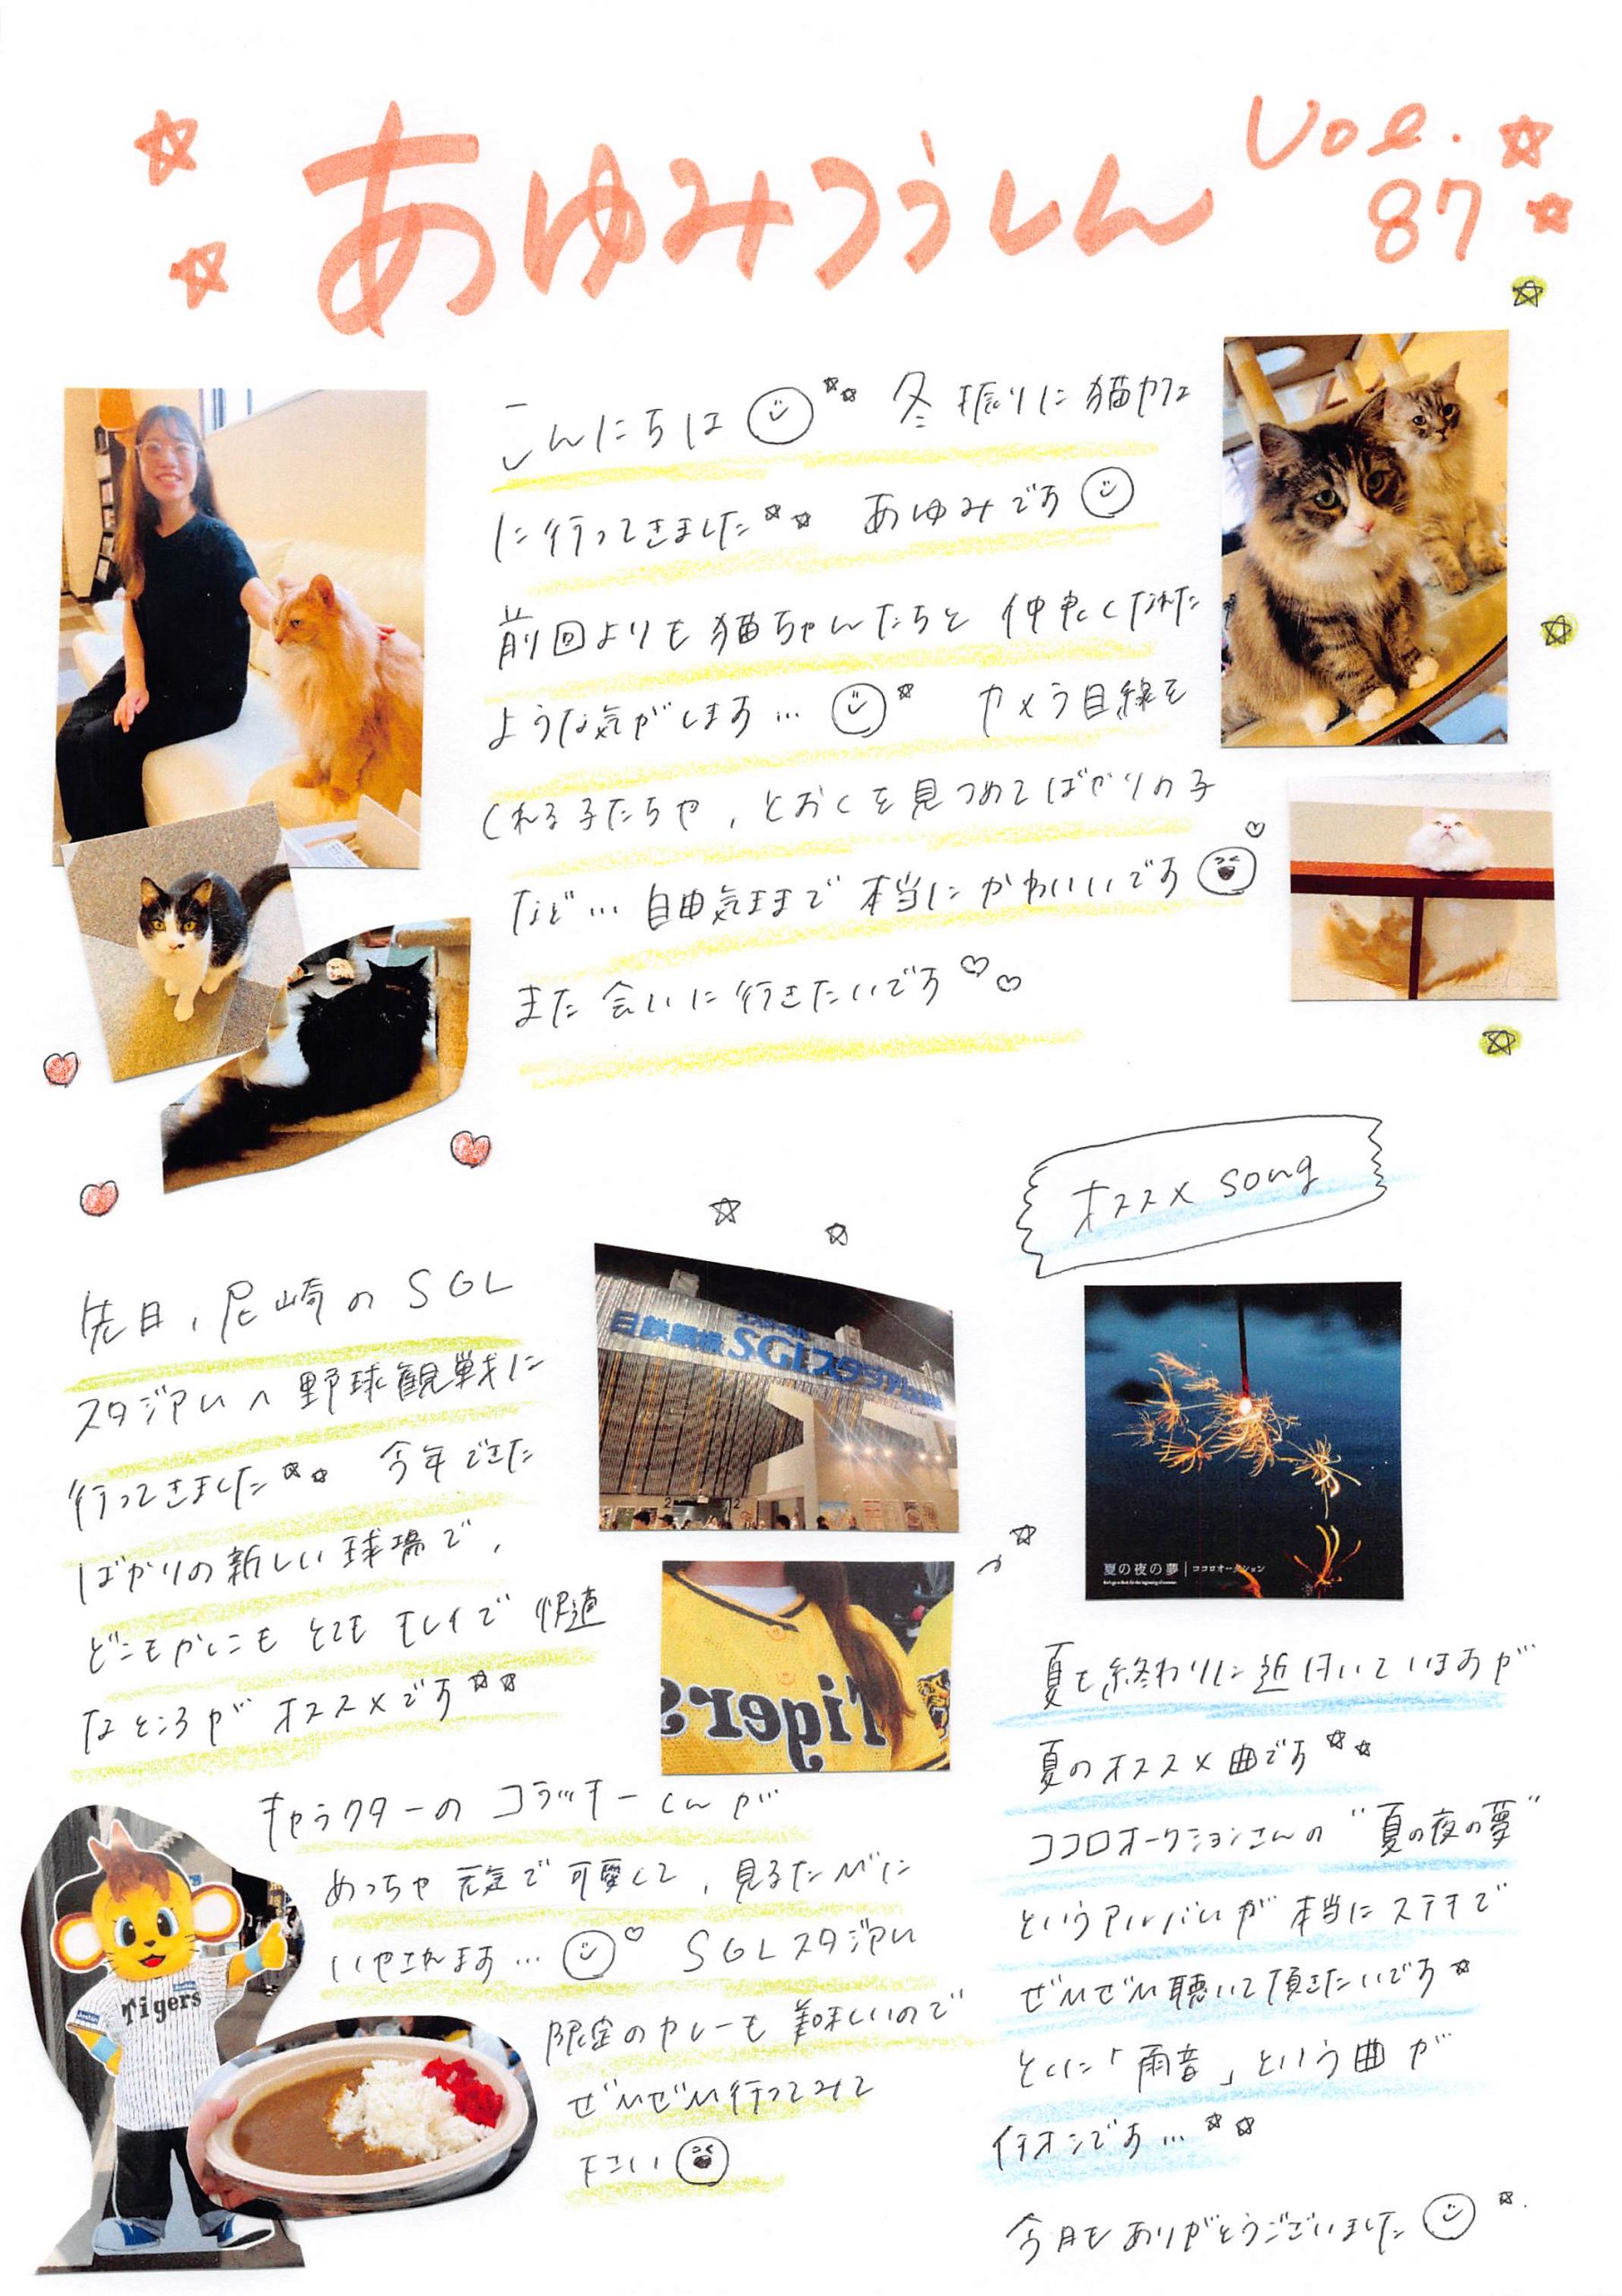 あゆみつうしん Vol. 87
こんにちは 冬振りに猫カフェ
に行ってきました あゆみです
前回よりも猫ちゃんたちと仲良くなれた
ような気がします… カメラ目線を
くれる子たちや、とおくを見つめてばかりの子
など… 自由気ままで本当にかわいいです
また会いに行きたいです
先日、尼崎のSGL
スタジアムへ野球観戦に
行ってきました 今年できた
ばかりの新しい球場で、
どこもかしこもとてもキレイで快適
なところがオススメです
日鉄鋼板
SGLスタジアム
Tigers
キャラクターのコラッキーくんが
めっちゃ元気で可愛くて、見るたびに
いやされます… SGLスタジアム
限定のカレーも美味しいので
ぜひぜひ行ってみて
下さい
Tigers
オススメ song
夏の夜の夢 | ココロオークション
夏も終わりに近付いていますが
夏のオススメ曲です
ココロオークションさんの"夏の夜の夢"
というアルバムが本当にステキで
ぜひぜひ聴いて頂きたいです
とくに「雨音」という曲が
イチオシです…
今月もありがとうございました